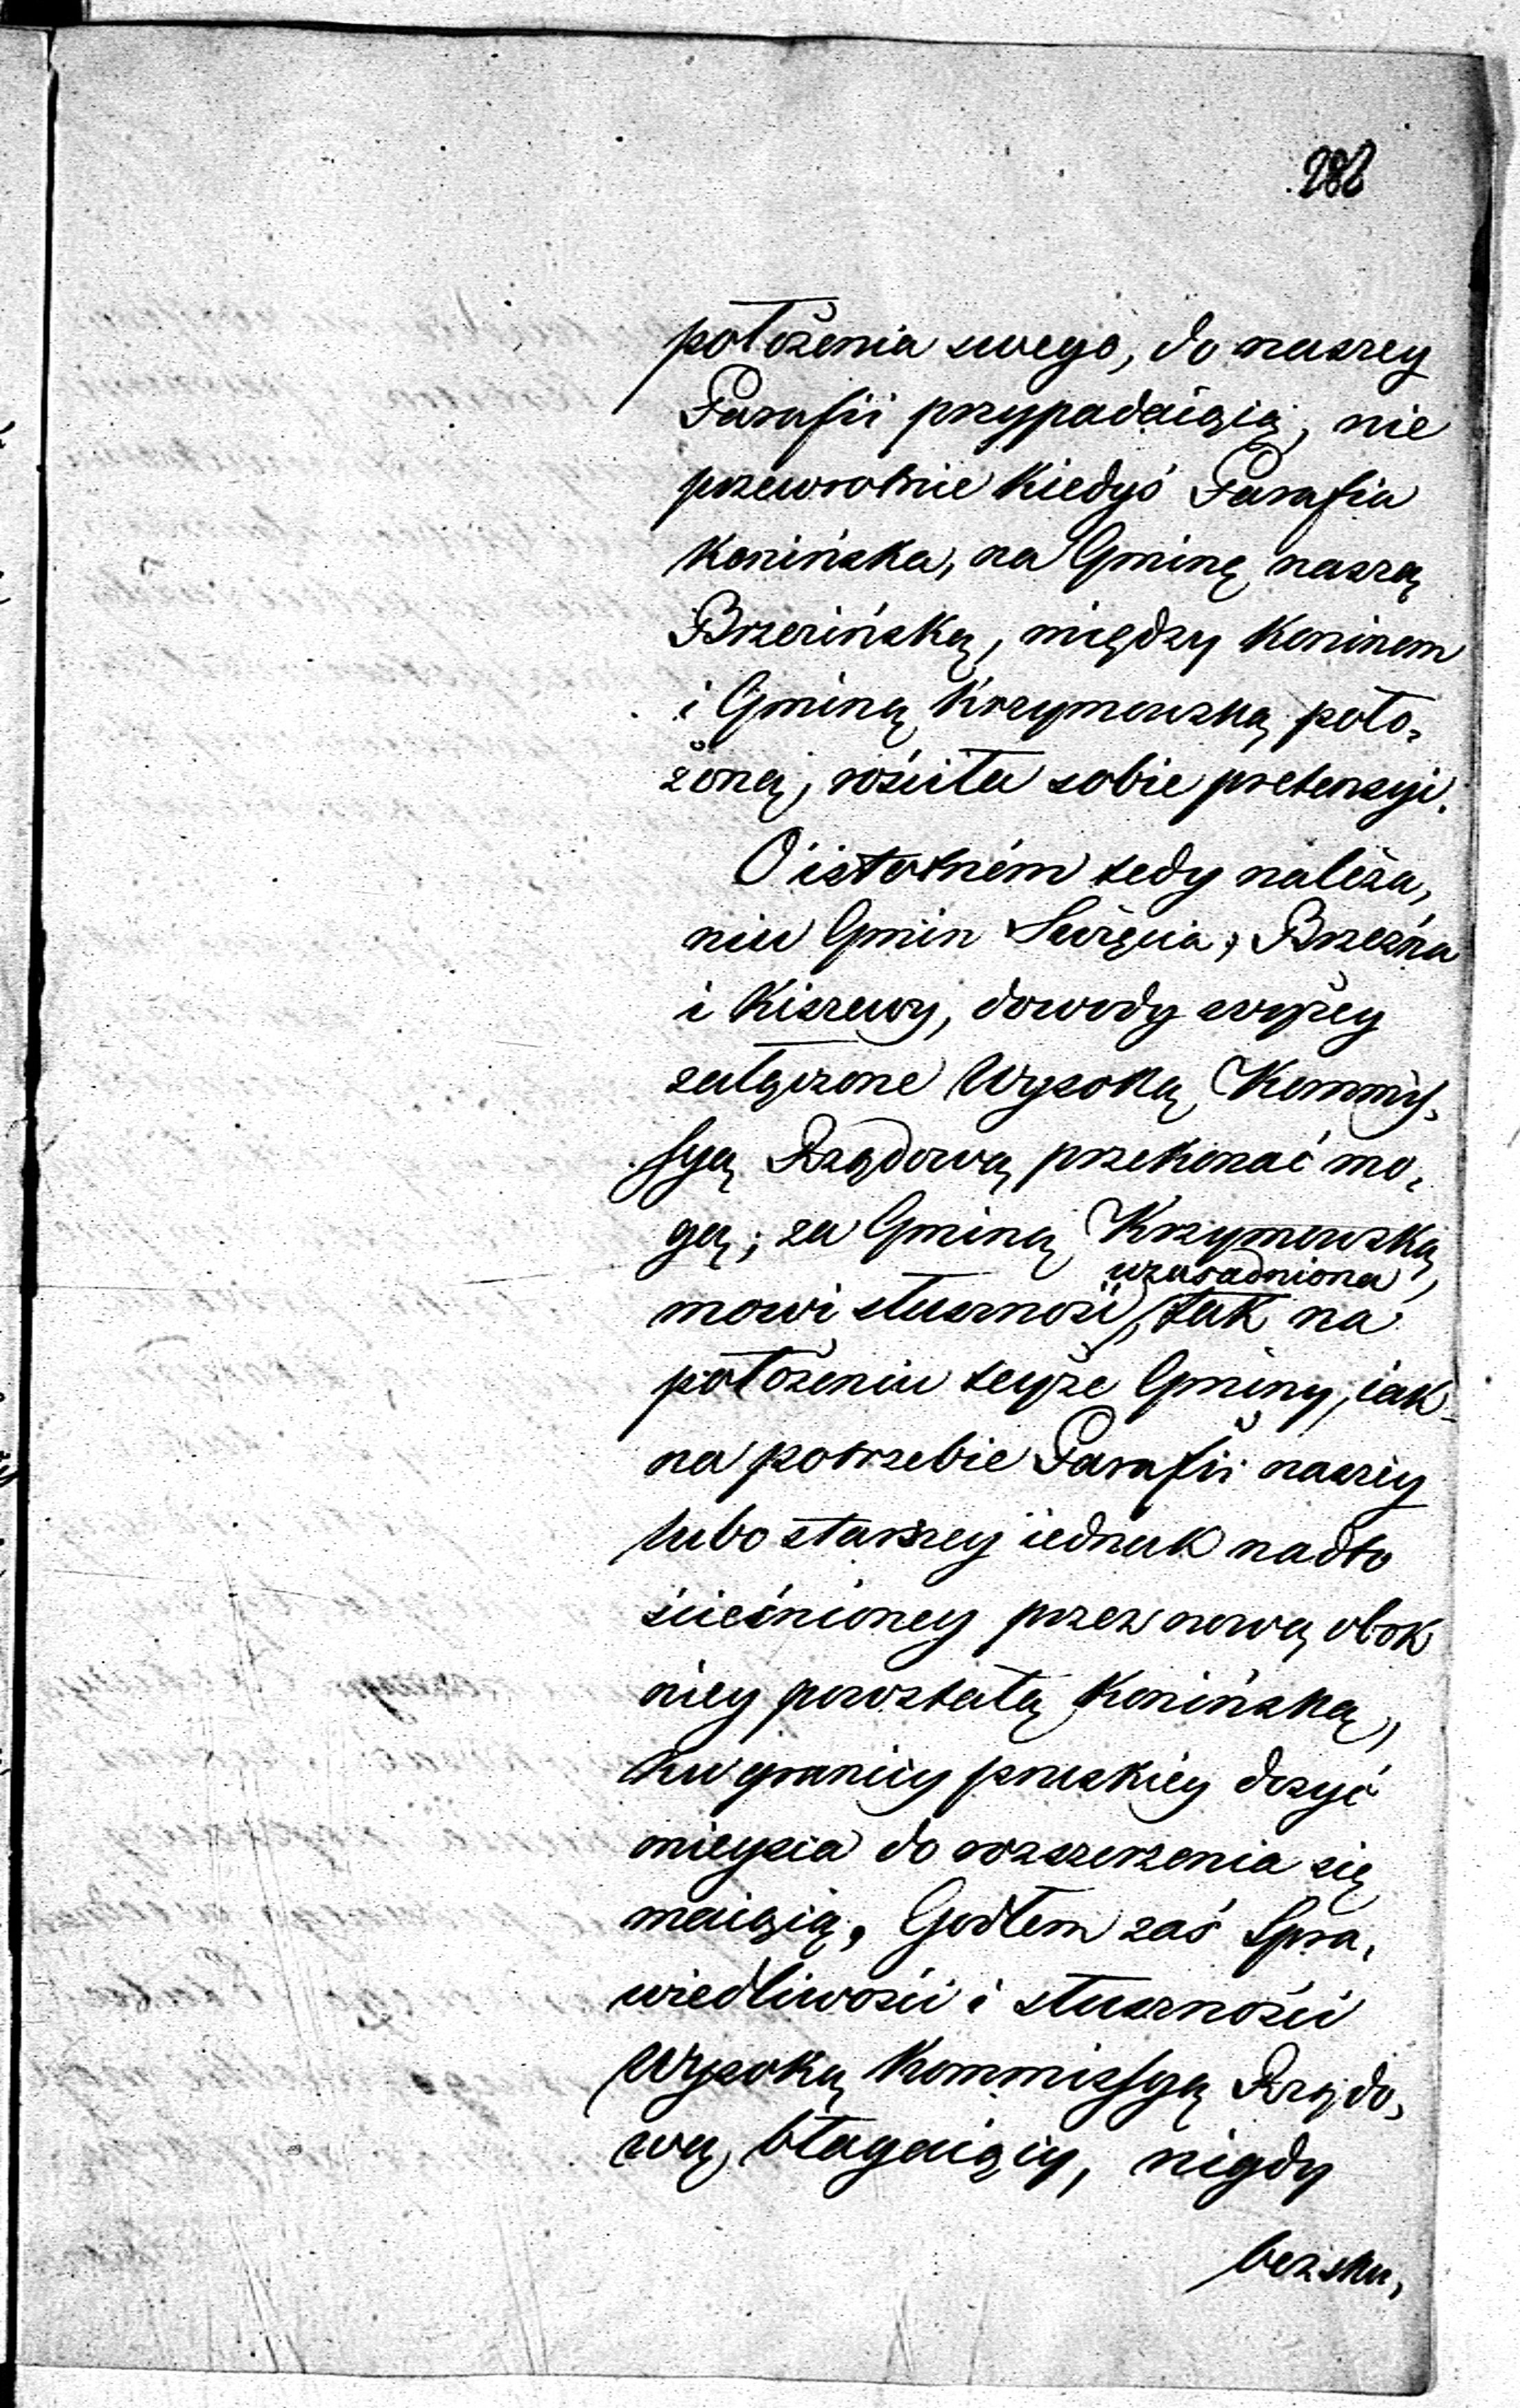 282
położenia swego, do naszey
Parafii przypadaiącą, nie
przewrotnie kiedyś Parafia
Konińska, na Gminę naszą
Brzezińską, między Koninem
i Gminą Krzymowską poło,
żoną, rościła sobie pretensyi.
O istotném tedy należa,
niu Gmin Święcia, Brzeźna
i Kiszewy, dowody wyżey
załączone Wysoką Kommis,
syą Rządową przekonać mo,
gą; za Gminą Krzymowską
uzasadniona,
mowi słuszność, tak na
położeniu teyże Gminy, iak
na potrzebie Parafii naszéy
lubo starszey iednak nadto
ścieśnioney przez nową obok
niey powstałą Konińską,
ku granicy pruskiéy dosyć
mieysca do rozszerzenia się
maiącą, Godłem zaś Spra,
wiedliwości i słuszności
Wysoką Kommissyą Rządo,
wą, błagaiący, nigdy
bezsku,